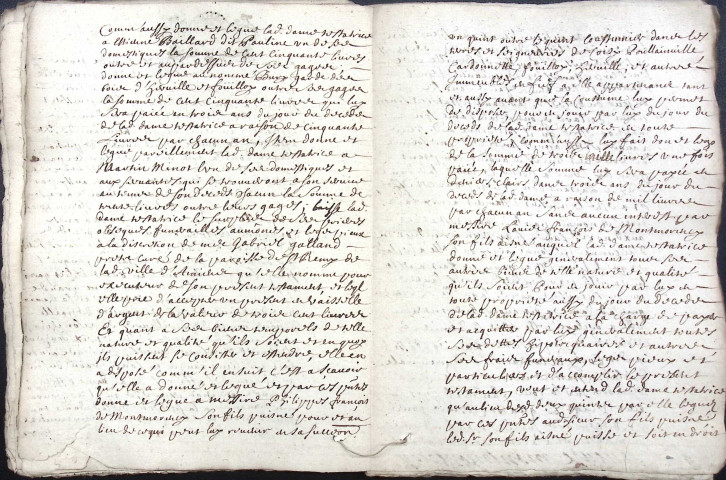 Comme aussy donne et legue lad. dame testatrice
a Baillard dit Pauline un de ses
domestiques la somme de cent cinquante livres
outre et au par dessus de ses gages
donne et legue au nomme garde des
bois d' et fouilloy outre ses gages
la somme de cent cinquante livres qui lux
sera paiée en trois ans du jour du deceds
de lad. dame testatrice a raison de cinquante
livres par chacun an, Item donne et
legue pareillement lad. dame testatrice a
Martin Minot l'un de ses domestiques et
aux servantes qui se trouveront a son service
au tems de son deceds chacun la somme de
trente livres outre leurs gages; laisse lad.
dame testatrice le surplus de ses prieres
obseques funerailles aumônes et legs pieux
a la discretion de mre Gabriel galland
pretre curé de la paroisse de St Remy de
lad. ville d'amiens qu'elle nomme pour
executeur de son present testament, et
elle prie d'accepter un present de vaisselle
d'argent de la valeur de trois cent livres
Et quant a ses biens temporels de telle
nature et qualité qu'ils soient et en quoy
ils puissent se consister et estendre, elle en
a disposé comm'il ensuit c'est a scavoir
qu'elle a donné et legué et par ces pntes
donne et legue a messire Philippes francois
de Montmorency son fils puisné pour et au
lieu de ce qui peut lux en sa succon
un quint outre le quint coustumier dans les
terres et seigneuries de Poullainville
Cardonnette, fouilloy, et autres
Immeubles a elle appartenans tant
et aussy avant que la coustume lux permet
de disposer, pour en jouir par lux du jour du
deceds de lad. dame testatrice en toute
proprieté, comm'aussy lux fait don et legs
de la somme de trois mille livres une fois
paiée, laquelle somme lux sera payée en
deniers clairs dans trois ans du jour du
deceds de lad. dame a raison de mil livres
par chacun an sans aucun interest par
messire francois de Montmorency
son fils aisné auquel lad. dame testatrice
donne et legue generalement tous ses
autres biens de telle nature et qualité
qu'ils soient pour en jouir par lux en
toute proprieté aussy du jour du deceds
de lad. dame testatrice a la charge de payer
et acquitter par lux generalement toutes
ses dettes hipotecquaires et autres
ses frais funeraux, legs pieux et
particuliers et d'accomplir le present
testament, veut et entend lad. dame testatrice
qu'au lieu desd. deux quints par elle legués
par ces pntes aud. sieur son fils puisné
led. sr son fils aisné puisse et soit en droit